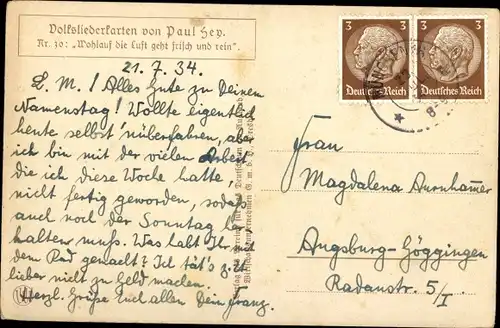 Volksliederkarten von Paul Hey.
Nr. 30: „Wohlauf die Luft geht frisch und rein“.
21.7.34.
L. M.! Alles Gute zu Deinem
Namenstag! Wollte eigentlich
heute selbst 'nüberfahren, aber
ich bin mit der vielen Arbeit,
die ich diese Woche hatte,
nicht fertig geworden, sodaß
auch noch der Sonntag
halten muß. Was habt Ihr mit
dem Rad gemacht? Ich tät's
lieber nicht zu Geld machen.
Herzl. Grüße Euch allen Dein Franz.
3 3
Deutsches Reich Deutsches Reich
Frau
Magdalena Aurnhamer
Augsburg-Göggingen
Radaustr. 5/I